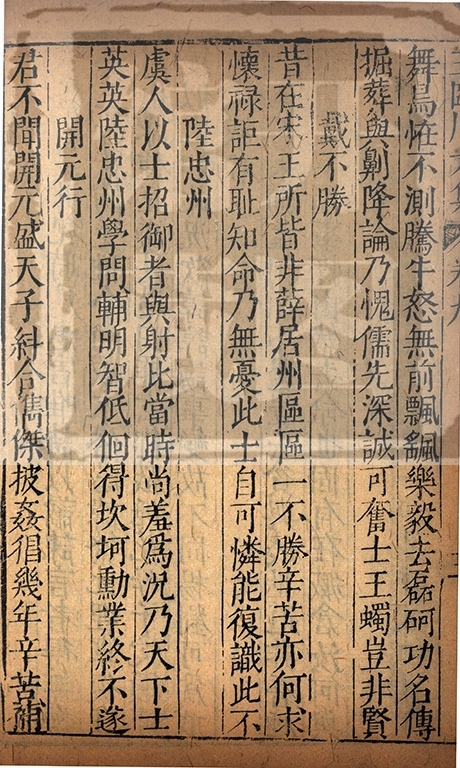 舞鳥恠不測騰牛怒無前飄颻樂毅去磊砢功名傳
掘葬與劓降論乃愧儒先深誠可奮士王蠋豈非賢
戴不勝
昔在宋王所皆非薛居州區區一不勝辛苦亦何求
懷祿詎有耻知命乃無憂此士自可憐能復識此不
陸忠州
虞人以士招御者與射比當時尚羞爲況乃天下士
英英陸忠州學問輔明智低佪得坎坷勳業終不遂
開元行
君不聞開元盛天子糾合儁傑披姦猖幾年辛苦補